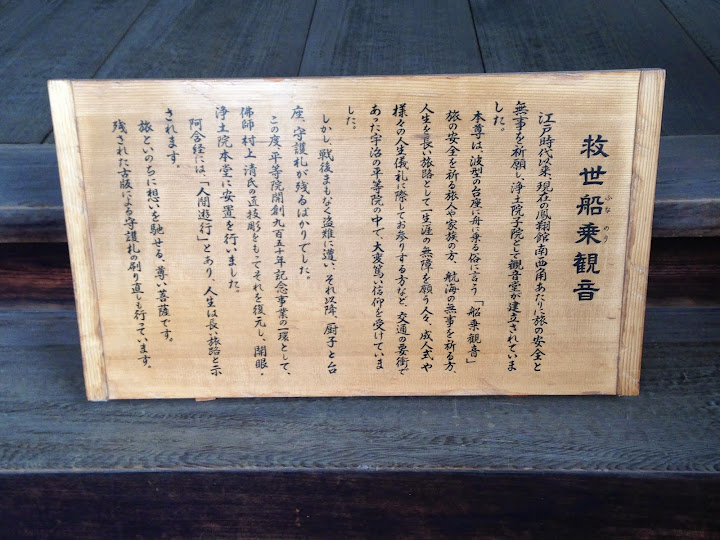 救世船乗観音
ふなのり
江戸時代以来、現在の鳳翔館南西角あたりに旅の安全と
無事を祈願し、浄土院子院として観音堂が建立されていま
した。
本尊は、波型の台座に舟に乗る俗に言う「船乗観音」
旅の安全を祈る旅人や家族の方、航海の無事を祈る方、
人生を長い旅路として一生涯の無障を願う人々、成人式や
様々の人生儀礼に際してお参りする方など、交通の要衝で
あった宇治の平等院の中で、大変篤い信仰を受けていま
した。
しかし、戦後まもなく盗難に遭い、それ以降、厨子と台
座、守護札が残るばかりでした。
この度、平等院開創九百五十年記念事業の一環として、
佛師 村上清氏の直技彫をもってそれを復元し、開眼・
浄土院本堂に安置を行いました。
阿含経には、「人間遊行」とあり、人生は長い旅路と示
されます。
旅といのちに想いを馳せる、尊い菩薩です。
残された古版による守護札の刷り直しも行っています。